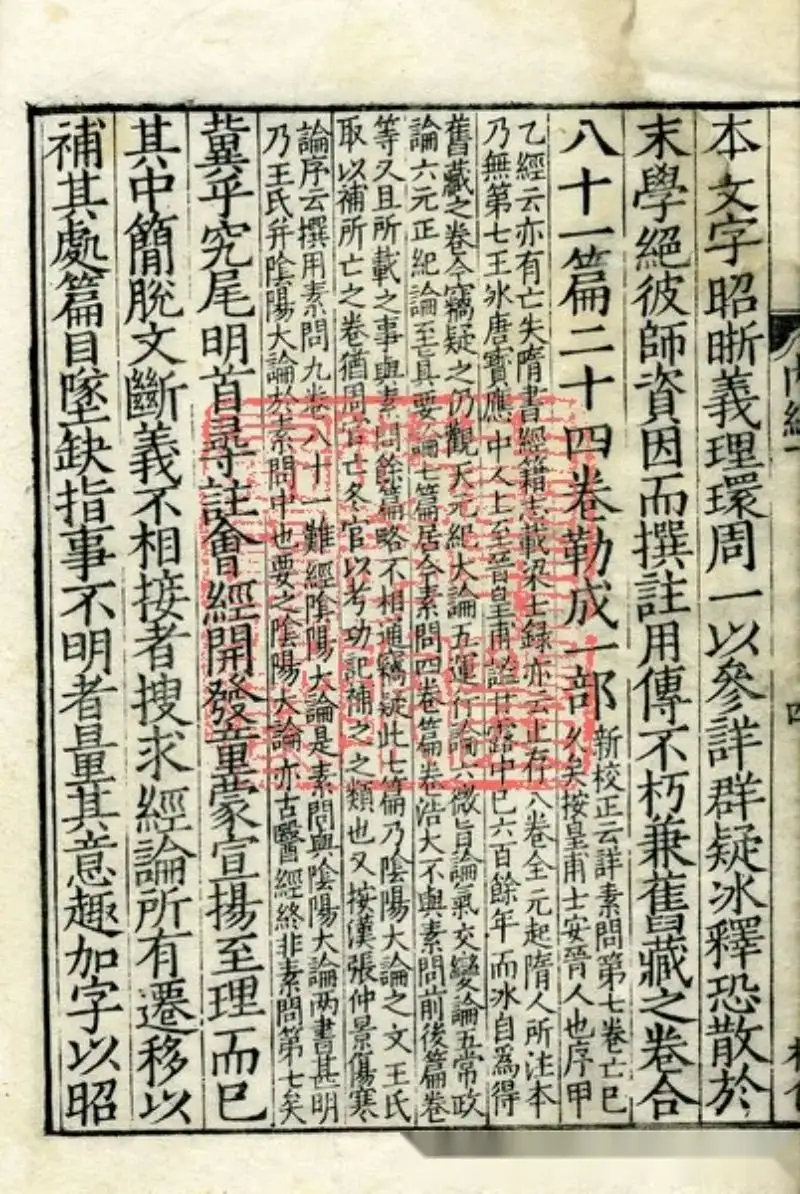 本文字昭晰義理環周一以參詳群疑冰釋恐散於
末學絕彼師資因而撰註用傳不朽兼舊藏之卷合
八十一篇二十四卷勒成一部
新校正云詳素問第七卷亡已
久矣按皇甫士安晉人也序甲
乙經云亦有亡失隋書經籍志載梁七錄亦云止存八卷全元起隋人所注本
乃無第七王冰唐寶應中人上至晉皇甫謐甘露中已六百餘年而冰自為得
舊藏之卷今竊疑之仍觀天元紀大論五運行論六微旨論氣交變論五常政
論六元正紀論至真要論七篇居今素問四卷篇卷浩大不與素問前後篇卷
等又且所載之事與素問餘篇略不相通竊疑此七篇乃陰陽大論之文王氏
取以補所亡之卷猶周官亡冬官以考功記補之之類也又按漢張仲景傷寒
論序云撰用素問九卷八十一難經陰陽大論是素問與陰陽大論兩書甚明
乃王氏并陰陽大論於素問中也要之陰陽大論亦古醫經終非素問第七矣
冀乎究尾明首尋註會經開發童蒙宣揚至理而已
其中簡脫文斷義不相接者搜求經論所有遷移以
補其處篇目墜缺指事不明者量其意趣加字以昭
内經一
四